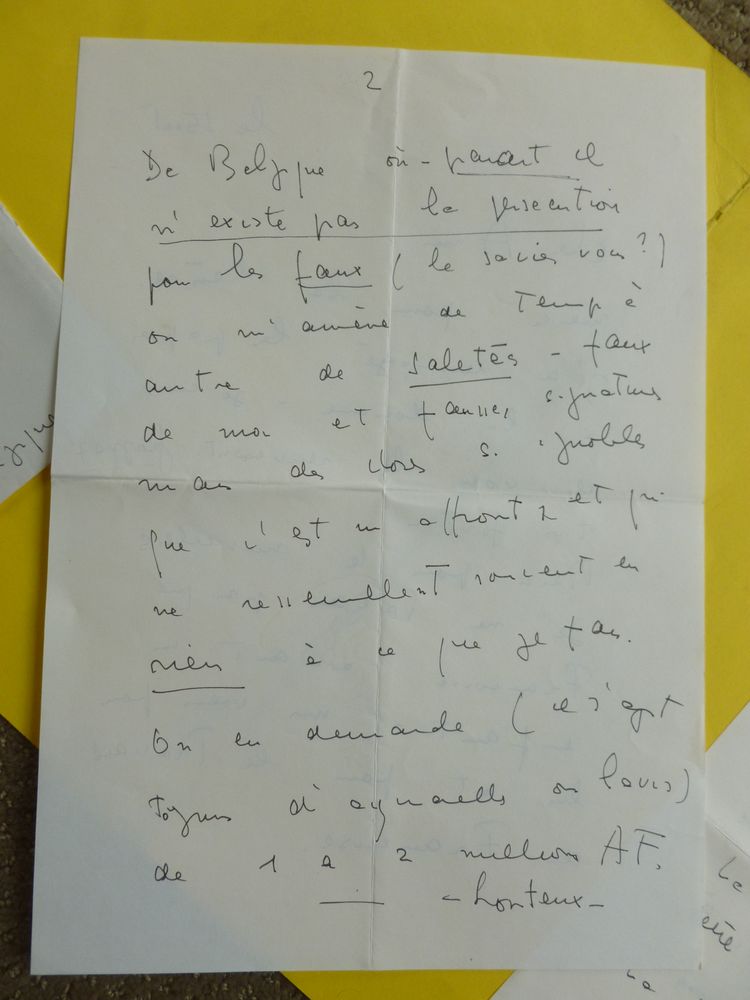 2
De Belgique où - parait il
n'existe pas la persecution
pour les faux (le saviez vous?)
on m'amène de Temp à
autre de saletés - faux
de moi et fausses signatures
mais des choses si ignobles
que c'est un affront et qui
ne ressemblent souvent en
rien à ce que je fais.
On en demande (il s'agit
toujours d'aquarelles ou lavis)
de 1 a 2 millions AF.
- honteux -